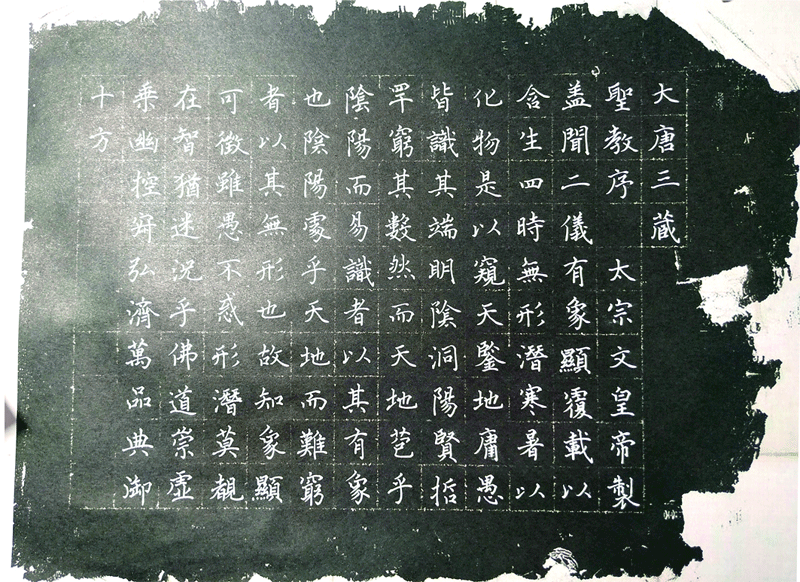 大唐三藏
聖教序 太宗文皇帝製
盖聞二儀有象顯覆載以
含生四時無形潛寒暑以
化物是以窺天鑒地庸愚
皆識其端明陰洞陽賢哲
罕窮其數然而天地苞乎
陰陽而易識者以其有象
也陰陽處乎天地而難窮
者以其無形也故知象顯
可徵雖愚不惑形潛莫覩
在智猶迷況乎佛道崇虛
乘幽控寂弘濟萬品典御
十方